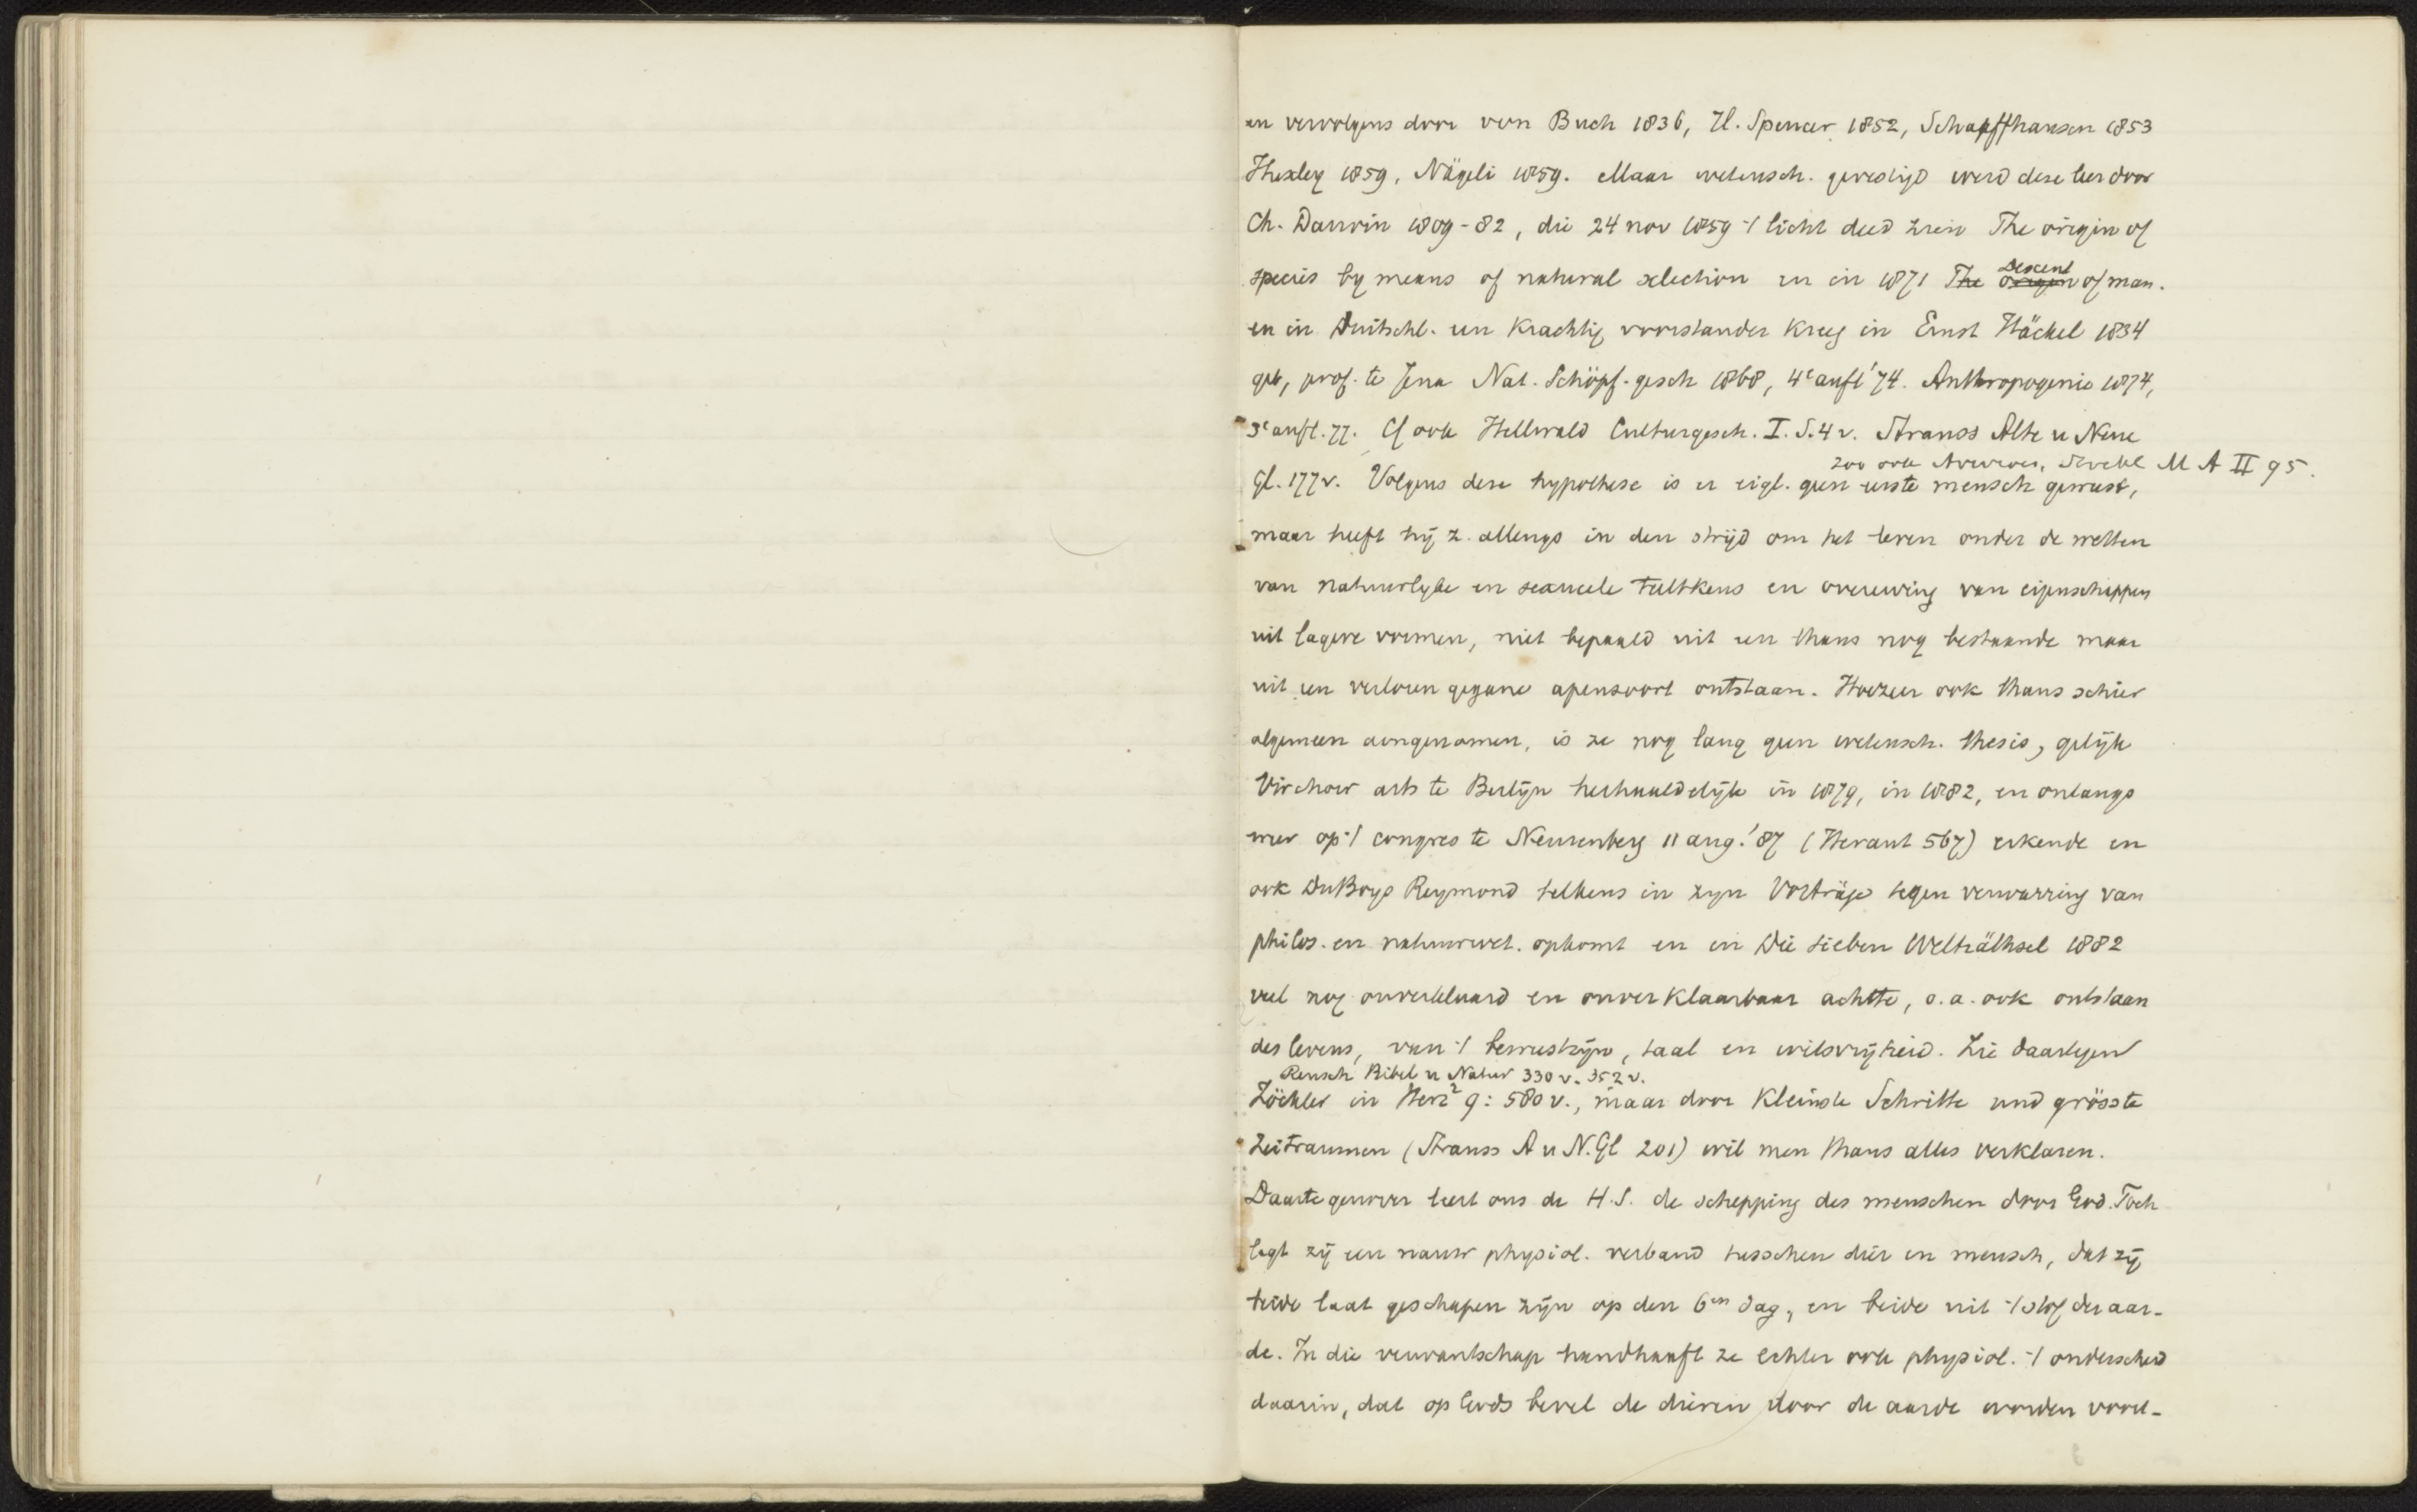 en vervolgens door von Buch 1836, H. Spencer 1852, Schaaffhausen 1853
Huxley 1859, Nägeli 1859. Maar wetensch. gevestigd werd deze leer door
Ch. Darwin 1809-82, die 24 nov 1859 -/ licht deed zien The origin of
species by means of natural selection en in 1871 The origin Descent of man.
en in Duitschl. een krachtig voorstander kreeg in Ernst Häckel 1834
geb, prof. te Jena Nat. Schöpf. gesch 1868, 4e aufl '74. Anthropogenie 1874,
3e aufl. 77. Cf ook Hellwald Culturgesch. I. S. 4 v. Strauss Alte u Neue
zoo ook Averroes, Stöckl M A II 95.
Gl. 177 v. Volgens deze hypothese is er eigl. geen eerste mensch geweest,
maar heeft hij z. allengs in den strijd om het leven onder de wetten
van natuurlyke en sexueele teeltkeus en overerving van eigenschappen
uit lagere vormen, niet bepaald uit een thans nog bestaande maar
uit een verloren gegane apensoort ontstaan. Hoezeer ook thans schier
algemeen aangenomen, is ze nog lang geen wetensch. thesis, gelijk
Virchow arts te Berlijn herhaaldelijk in 1879, in 1882, en onlangs
weer op -/ congres te Neurenberg 11 aug. '87 (Heraut 567) erkende en
ook DuBoys Reymond telkens in zyn Vorträge tegen verwarring van
philos. en natuurwet. opkomt en in Die sieben Welträthsel 1882
veel nog onverklaard en onverklaarbaar achtte, o.a. ook ontstaan
des levens, van -/ bewustzijn, taal en wilsvrijheid. Zie daartegen
Reusch Bibel u Natur 330 v. 352 v.
Zöckler in Herz² 9: 580 v., maar door kleinste Schritte und grösste
Zeitraumen (Strauss A u N. Gl 201) wil men thans alles verklaren.
Daartegenover leert ons de H.S. de schepping des menschen door God. Toch
legt zij een nauw physiol. verband tusschen dier en mensch, dat zij
beide laat geschapen zijn op den 6en dag, en beide uit -/ stof der aar-
de. In die verwantschap handhaaft ze echter ook physiol. -/ onderscheid
daarin, dat op Gods bevel de dieren door de aarde worden voort-